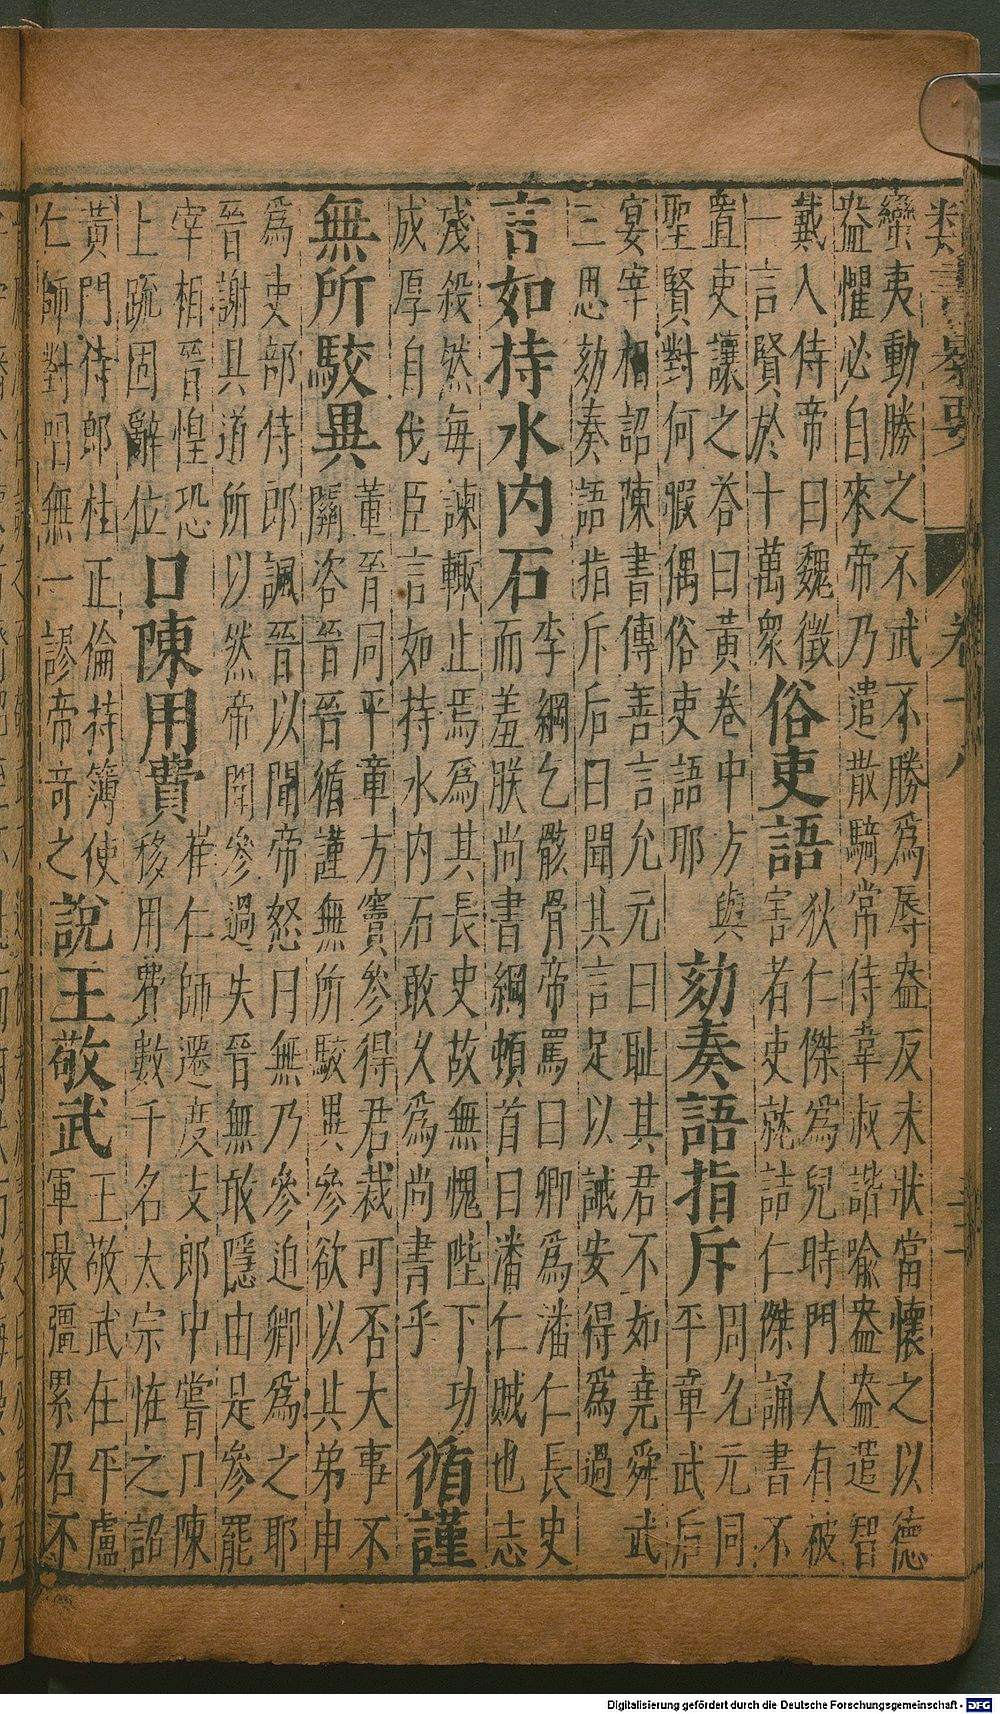 類書纂要 卷十八 三十一
蠻夷動勝之不武不勝為辱盎反未狀當懷之以德
盎懼必自來帝乃遣散騎常侍韋叔諧喻盎盎遣智
戴入侍帝曰魏徵
一言賢於十萬衆
俗吏語
狄仁傑為兒時門人有被
害者吏就詰仁傑誦書不
置吏讓之荅曰黃卷中方與
聖賢對何暇偶俗吏語耶
劾奏語指斥
周允元同
平章武后
宴宰相詔陳書傳善言允元曰耻其君不如堯舜武
三思劾奏語指斥后曰聞其言足以誡安得為過
言如持水内石
李綱乞骸骨帝罵曰卿為潘仁長史
而羞朕尚書綱頓首曰潘仁賊也志
殘殺然每諫輒止焉為其長史故無愧陛下功
成厚自伐臣言如持水内石敢久為尚書乎
循謹
無所駮異
董晉同平章方竇參得君裁可否大事不
關咨晉晉循謹無所駮異參欲以其弟申
為吏部侍郎諷晉以聞帝怒曰無乃參迫卿為之耶
晉謝具道所以然帝問參過失晉無敢隱由是參罷
宰相晉惶恐
上疏固辭位
口陳用費
崔仁師遷度支郎中嘗口陳
移用費數千名太宗恠之詔
黃門侍郎杜正倫持簿使
仁師對唱無一謬帝奇之
說王敬武
王敬武在平盧
軍最彊累召不
Digitalisierung gefördert durch die Deutsche Forschungsgemeinschaft - DFG